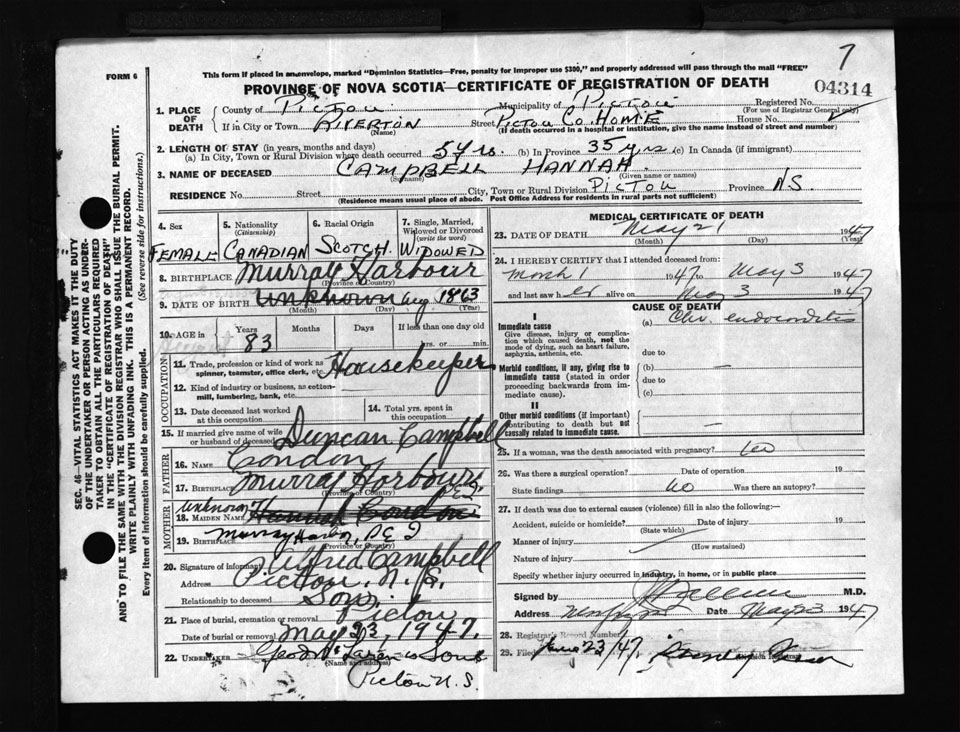 7
FORM 6
This form if placed in an envelope, marked "Dominion Statistics—Free, penalty for improper use $300," and properly addressed will pass through the mail "FREE"
PROVINCE OF NOVA SCOTIA—CERTIFICATE OF REGISTRATION OF DEATH
04314
1. PLACE OF DEATH
County of Pictou Municipality of Pictou Registered No.
(For use of Registrar General only)
If in City or Town Riverton Street Pictou Co. Home House No.
(Name) (If death occurred in a hospital or institution, give the name instead of street and number)
2. LENGTH OF STAY (in years, months and days)
(a) In City, Town or Rural Division where death occurred 5 yrs. (b) In Province 35 yrs (c) In Canada (if immigrant)
3. NAME OF DECEASED CAMPBELL HANNAH
(Surname) (Given name or names)
RESIDENCE No. Street City, Town or Rural Division PICTOU Province N.S
(Residence means usual place of abode. Post Office Address for residents in rural parts not sufficient)
SEC. 46—VITAL STATISTICS ACT MAKES IT THE DUTY
OF THE UNDERTAKER OR PERSON ACTING AS UNDERTAKER
TO OBTAIN ALL THE PARTICULARS REQUIRED
IN THE "CERTIFICATE OF REGISTRATION OF DEATH"
AND TO FILE THE SAME WITH THE DIVISION REGISTRAR WHO SHALL ISSUE THE BURIAL PERMIT.
WRITE PLAINLY WITH UNFADING INK. THIS IS A PERMANENT RECORD.
Every item of information should be carefully supplied. (See reverse side for instructions.)
4. Sex 5. Nationality (Citizenship) 6. Racial Origin 7. Single, Married, Widowed or Divorced (write the word)
FEMALE CANADIAN SCOTCH. WIDOWED
8. BIRTHPLACE Murray Harbour
(Province or Country)
9. DATE OF BIRTH Unknown Aug 1863
(Month) (Day) (Year)
10. AGE in Years Months Days If less than one day old
83 hrs. or min.
OCCUPATION
11. Trade, profession or kind of work as spinner, teamster, office clerk, etc. Housekeeper
12. Kind of industry or business, as cotton-mill, lumbering, bank, etc.
13. Date deceased last worked at this occupation
14. Total yrs. spent in this occupation
15. If married give name of wife or husband of deceased Duncan Campbell
FATHER
16. NAME Condon
17. BIRTHPLACE Murray Harbour P.E.I.
(Province or Country)
MOTHER
unknown
18. MAIDEN NAME Hannah Condon
19. BIRTHPLACE Murray Harbor, P E I
(Province or Country)
20. Signature of informant Alfred Campbell
Address Pictou, N.S.
Relationship to deceased Son
21. Place of burial, cremation or removal Pictou
Date of burial or removal May 23, 1947.
22. UNDERTAKER Geo McLaren & Sons
(Name and address)
Pictou N.S.
MEDICAL CERTIFICATE OF DEATH
23. DATE OF DEATH May 21 1947
(Month) (Day) (Year)
24. I HEREBY CERTIFY that I attended deceased from
March 1 1947 to May 3 1947
and last saw her alive on May 3 1947
CAUSE OF DEATH
I
Immediate cause (a) Chr. endocarditis
Give disease, injury or complication which caused death, not the mode of dying, such as heart failure, asphyxia, asthenia, etc.
due to
Morbid conditions, if any, giving rise to immediate cause (stated in order proceeding backwards from immediate cause). (b) —
due to
(c)
II
Other morbid conditions (if important) contributing to death but not causally related to immediate cause. —
25. If a woman, was the death associated with pregnancy? no
26. Was there a surgical operation? Date of operation 19
State findings no Was there an autopsy?
27. If death was due to external causes (violence) fill in also the following:
Accident, suicide or homicide? Date of injury 19
(State which)
Manner of injury
(How sustained)
Nature of injury
Specify whether injury occurred in industry, in home, or in public place
Signed by M.D.
Address Date May 23 1947
28. Registrar's Record Number
29. Filed June 23/47.
Division Registrar